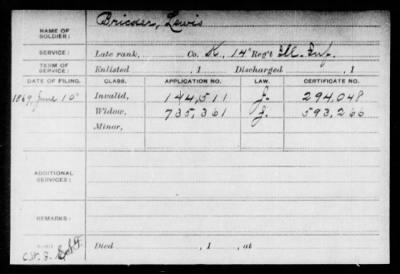 NAME OF SOLDIER: Bricder, Lewis
SERVICE: Late rank, Co. K, 14" Reg't Ill. Inf.
TERM OF SERVICE: Enlisted , 1 Discharged , 1
DATE OF FILING. CLASS. APPLICATION NO. LAW. CERTIFICATE NO.
1869, June 10 Invalid, 144,511 J. 294,048
Widow, 735,361 J. 593,260
Minor,
ADDITIONAL SERVICES:
REMARKS:
Died , 1 , at